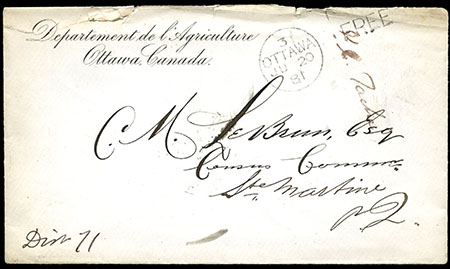 Departement de l'Agriculture
Ottawa, Canada.
3
OTTAWA
20
81
FREE
C. M. LeBrun, Esq
Census Commr
Ste Martine
P. Q.
Dist 71